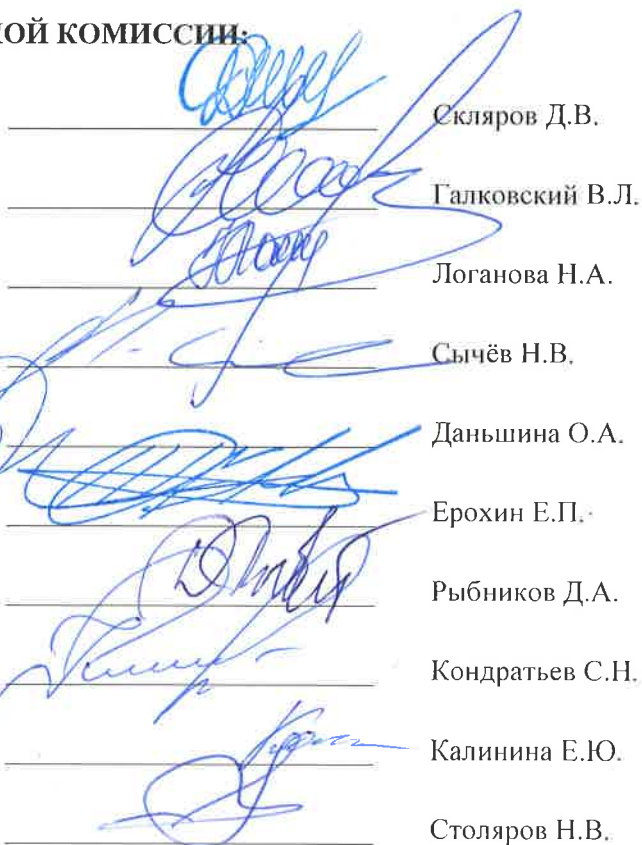 ОЙ КОМИССИИ:
Скляров Д.В.
Галковский В.Л.
Логанова Н.А.
Сычёв Н.В.
Даньшина О.А.
Ерохин Е.П.
Рыбников Д.А.
Кондратьев С.Н.
Калинина Е.Ю.
Столяров Н.В.